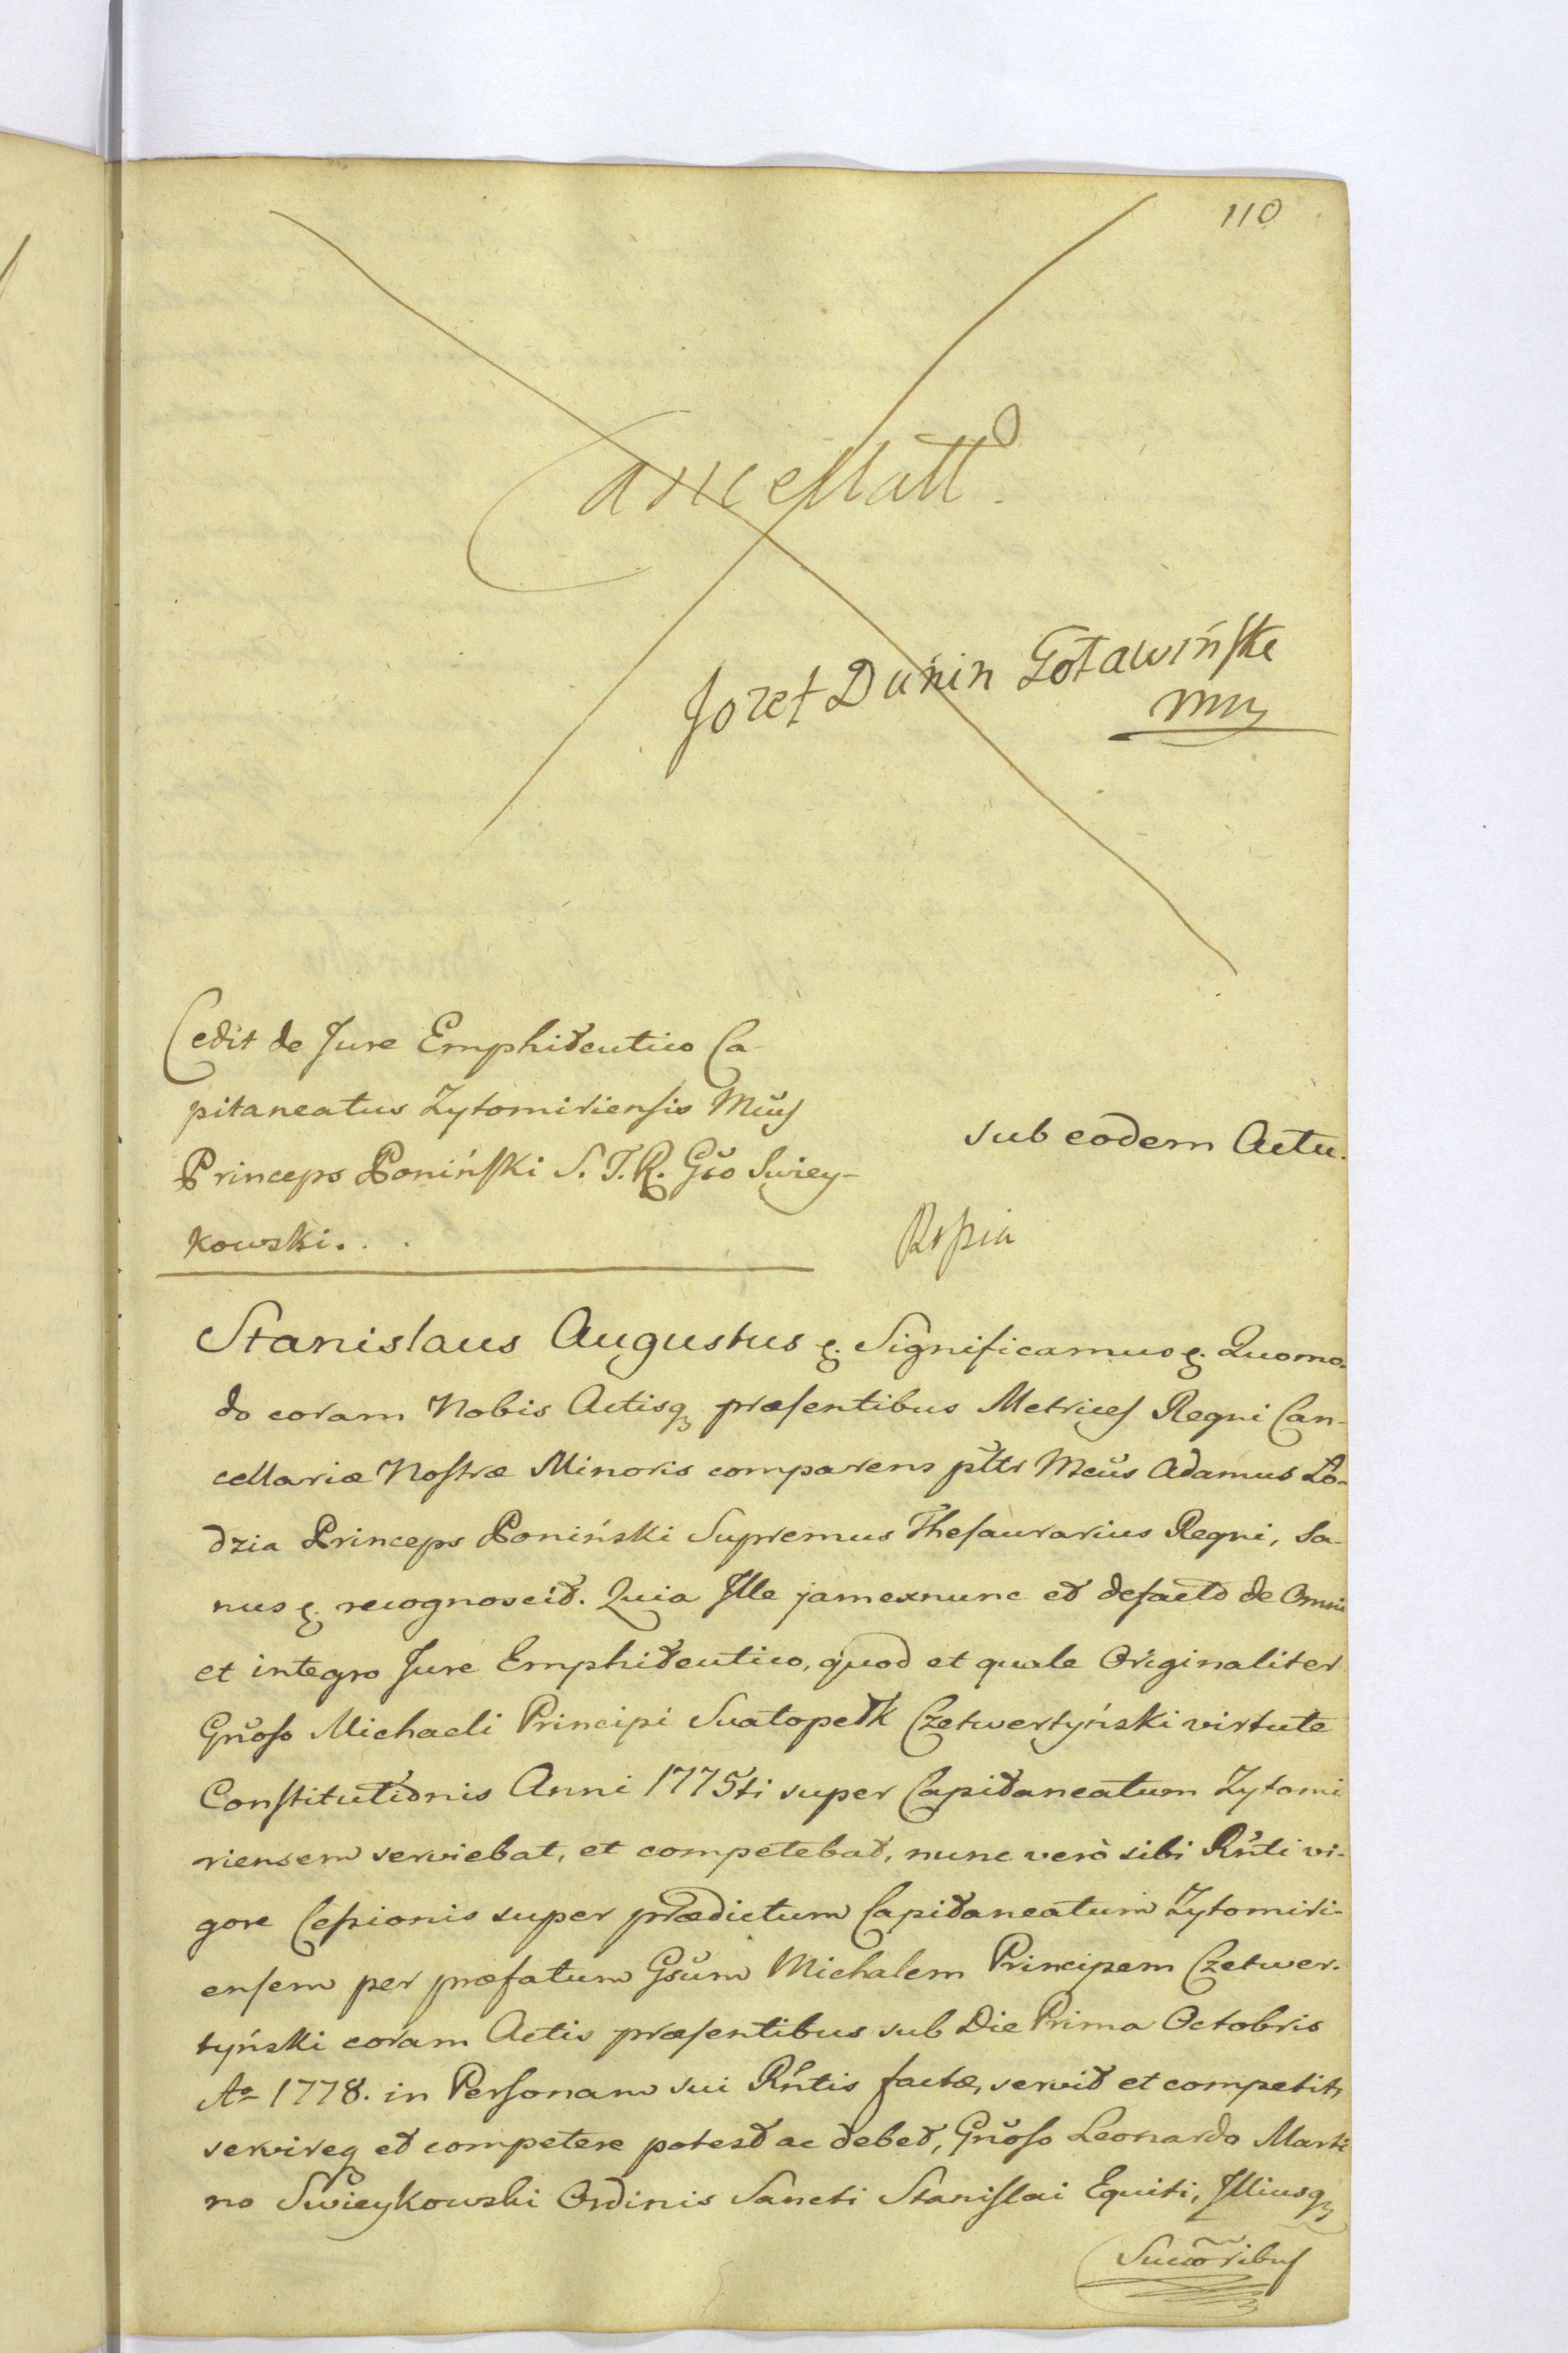 110
Cancellatt.
Jozef Dunin Gotawińske
mp
Cedit de Jure Emphiteutico Ca-
pitaneatus Zytomiriensis Mcus
Princeps Poniński S. T. R. Gso Swiey-
kowski...
sub eodem Actu.
Kopia
Stanislaus Augustus &. Significamus &. Quomo-
do coram Nobis Actisq præsentibus Metrices Regni Can-
cellariæ Nostræ Minoris comparens pltr Mcus Adamus Lo-
dzia Princeps Poniński Supremus Thesaurarius Regni, Sa-
nus &. recognoscit. Quia Ille jamexnunc et defacto de Omni
et integro Jure Emphiteutico, quod et quale Originaliter
Gnoso Michaeli Principi Swatopełk Czetwertyński virtute
Constitutionis Anni 1775ti super Capitaneatum Zytomi
riensem serviebat, et competebat, nunc verò sibi Rnti vi-
gore Cessionis super prædictum Capitaneatum Zytomiri-
ensem per præfatum Gsum Michalem Principem Czetwer-
tyński coram Actis præsentibus sub Die Prima Octobris
Ao 1778. in Personam sui Rntis factæ, servit et competit,
servireq et competere potest ac debet, Gnoso Leonardo Marti
no Swieykowski Ordinis Sancti Stanislai Equiti, Illiusq
Succoribus